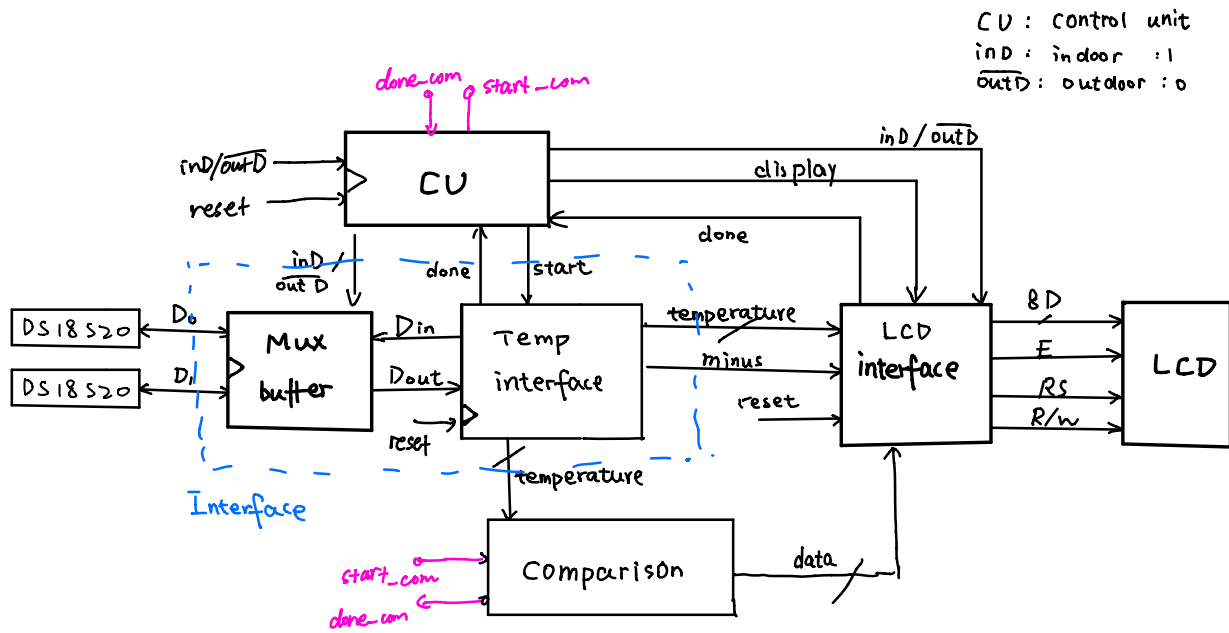 CU : control unit
inD : indoor : 1
outD : outdoor : 0
done_com
start_com
inD/outD
reset
CU
inD/outD
display
done
inD /
outD
done
start
DS18S20
DS18S20
D0
D1
Mux
buffer
Din
Dout
reset
Temp
interface
temperature
minus
reset
LCD
interface
8D
E
RS
R/W
LCD
Interface
temperature
start_com
done_com
Comparison
data